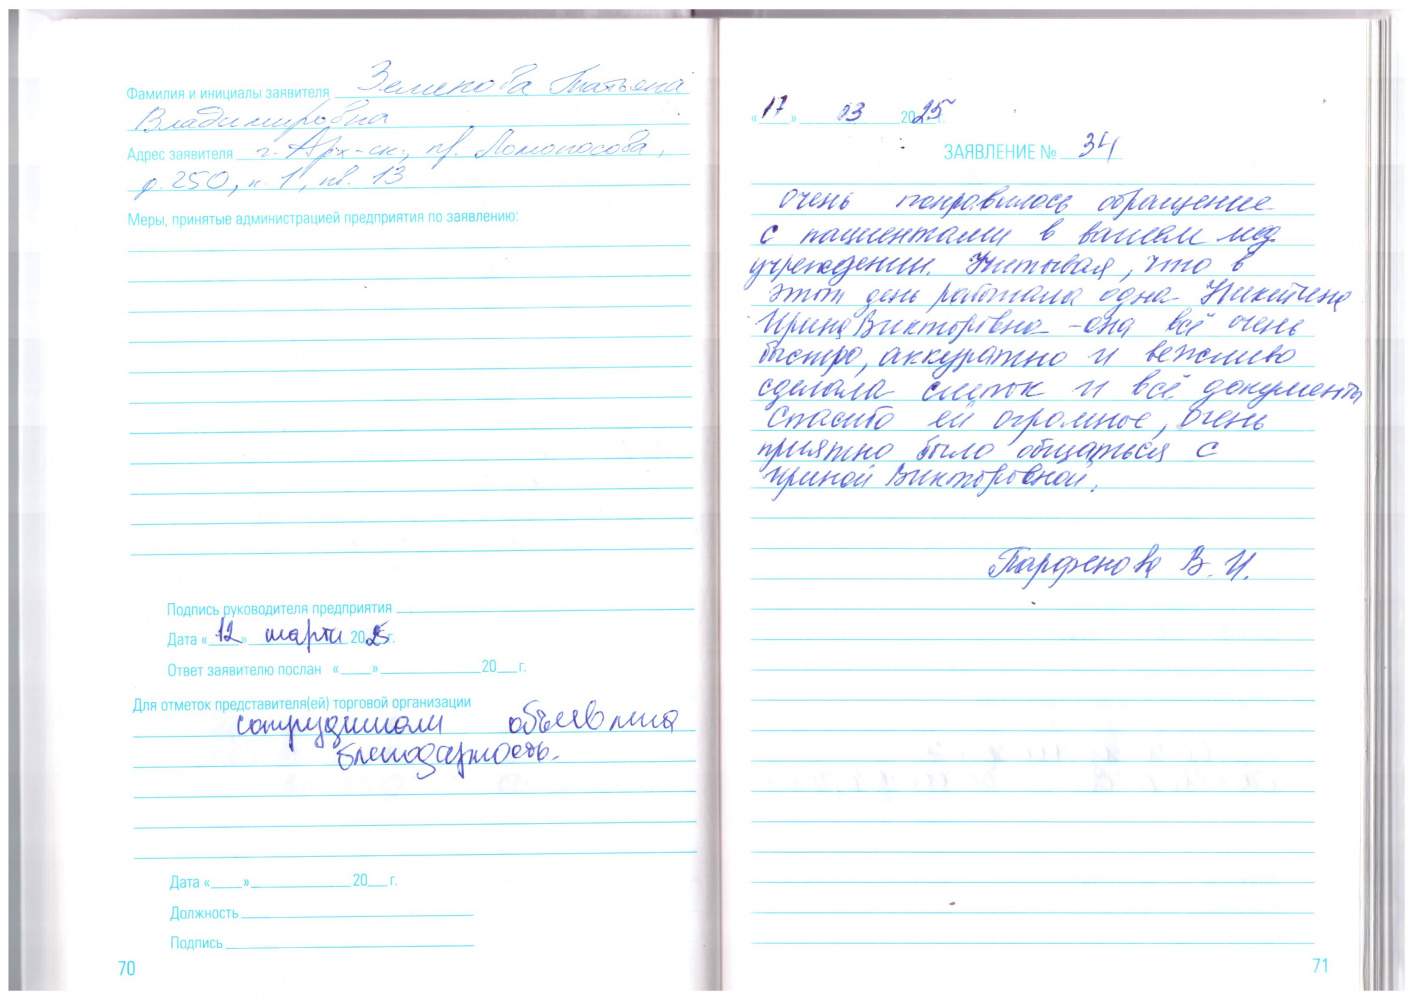 Фамилия и инициалы заявителя Земцова Татьяна
Владимировна
Адрес заявителя г. Арх-ск, пр. Ломоносова,
д. 250, к 1, кв. 13
Меры, принятые администрацией предприятия по заявлению:
Подпись руководителя предприятия
Дата «12» марта 2025 г.
Ответ заявителю послан « » 20 г.
Для отметок представителя(ей) торговой организации
сотрудникам объявлена
благодарность.
Дата « » 20 г.
Должность
Подпись
70
«17» 03 2025
ЗАЯВЛЕНИЕ № 34
Очень понравилось обращение
с пациентами в вашем мед
учреждении. Учитывая, что в
этот день работала одна Никитина
Ирина Викторовна - она всё очень
быстро, аккуратно и вежливо
сделала слепок и всё документы
Спасибо ей огромное, очень
приятно было общаться с
Ириной Викторовной.
Парфенова В. И.
71